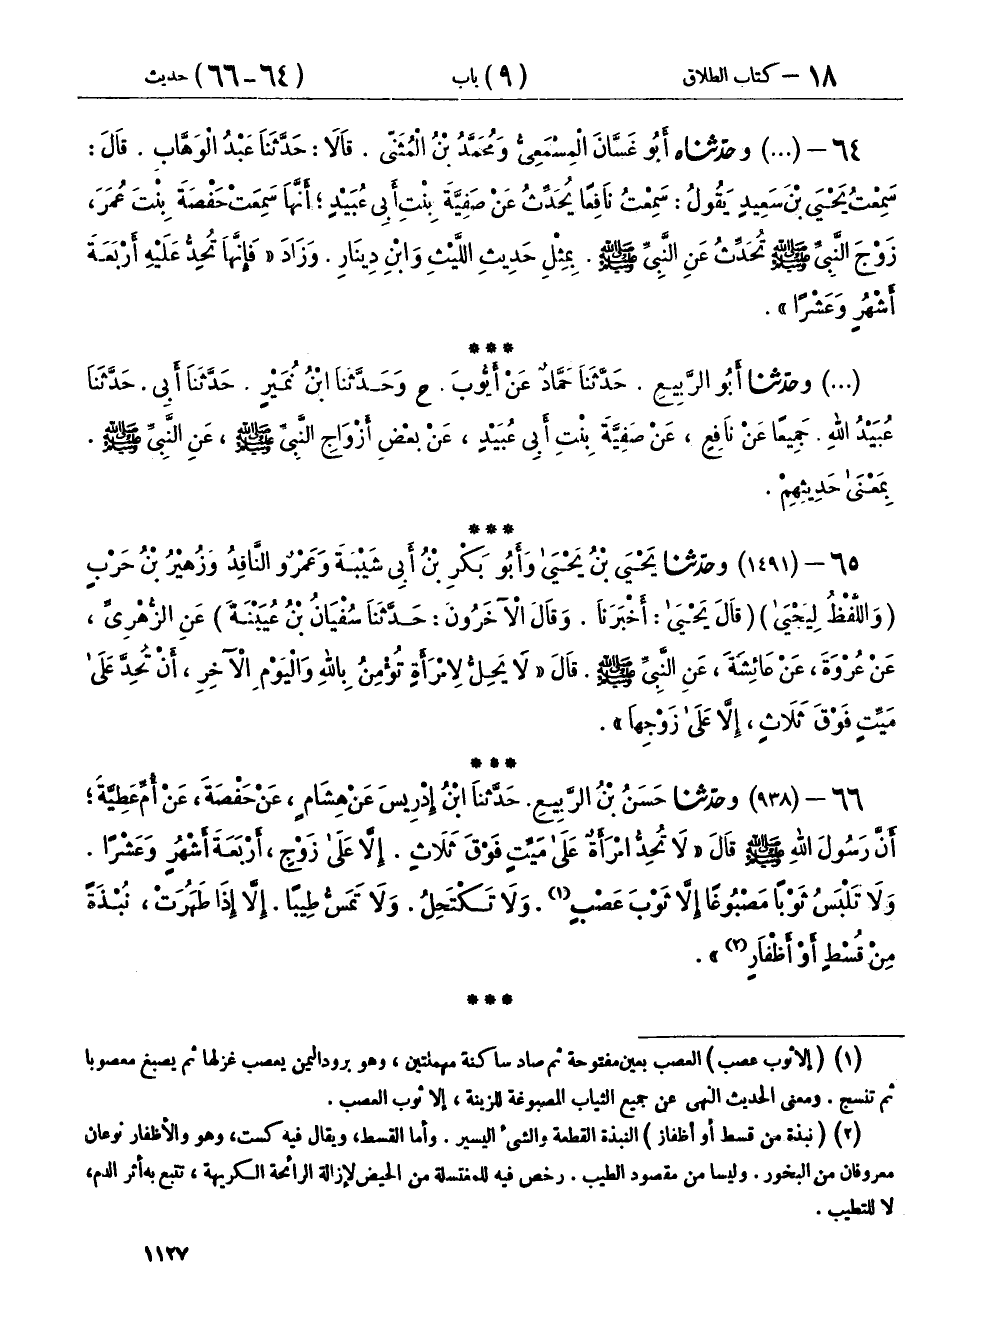 ١٨ – كتاب الطلاق (٩) باب (٦٤-٦٦) حديث
٦٤ – (...) وحدّثناه أَبُو غَسَّانَ الْمِسْمَعِيُّ وَمُحَمَّدُ بْنُ الْمُثَنَّى . قَالَا : حَدَّثَنَا عَبْدُ الْوَهَّابِ . قَالَ :
سَمِعْتُ يَحْيَىٰ بْنَ سَعِيدٍ يَقُولُ : سَمِعْتُ نَافِعًا يُحَدِّثُ عَنْ صَفِيَّةَ بِنْتِ أَبِي عُبَيْدٍ ؛ أَنَّهَا سَمِعَتْ حَفْصَةَ بِنْتَ عُمَرَ،
زَوْجَ النَّبِيِّ ﷺ تُحَدِّثُ عَنِ النَّبِيِّ ﷺ . بِمِثْلِ حَدِيثِ اللَّيْثِ وَابْنِ دِينَارٍ . وَزَادَ « فَإِنَّهَا تُحِدُّ عَلَيْهِ أَرْبَعَةَ
أَشْهُرٍ وَعَشْرًا » .
***
(...) وحدّثنا أَبُو الرَّبِيعِ . حَدَّثَنَا حَمَّادٌ عَنْ أَيُّوبَ . ح وَحَدَّثَنَا ابْنُ نُمَيْرٍ . حَدَّثَنَا أَبِي . حَدَّثَنَا
عُبَيْدُ اللهِ . جَمِيعًا عَنْ نَافِعٍ ، عَنْ صَفِيَّةَ بِنْتِ أَبِي عُبَيْدٍ ، عَنْ بَعْضِ أَزْوَاجِ النَّبِيِّ ﷺ ، عَنِ النَّبِيِّ ﷺ .
بِمَعْنَىٰ حَدِيثِهِمْ .
***
٦٥ – (١٤٩١) وحدّثنا يَحْيَىٰ بْنُ يَحْيَىٰ وَأَبُو بَكْرِ بْنُ أَبِي شَيْبَةَ وَعَمْرٌو النَّاقِدُ وَزُهَيْرُ بْنُ حَرْبٍ
( وَاللَّفْظُ لِيَحْيَىٰ ) ( قَالَ يَحْيَىٰ : أَخْبَرَنَا . وَقَالَ الْآخَرُونَ : حَدَّثَنَا سُفْيَانُ بْنُ عُيَيْنَةَ ) عَنِ الزُّهْرِيِّ ،
عَنْ عُرْوَةَ ، عَنْ عَائِشَةَ ، عَنِ النَّبِيِّ ﷺ . قَالَ « لَا يَحِلُّ لِامْرَأَةٍ تُؤْمِنُ بِاللهِ وَالْيَوْمِ الْآخِرِ ، أَنْ تُحِدَّ عَلَىٰ
مَيِّتٍ فَوْقَ ثَلَاثٍ ، إِلَّا عَلَىٰ زَوْجِهَا » .
***
٦٦ – (٩٣٨) وحدّثنا حَسَنُ بْنُ الرَّبِيعِ . حَدَّثَنَا ابْنُ إِدْرِيسَ عَنْ هِشَامٍ ، عَنْ حَفْصَةَ ، عَنْ أُمِّ عَطِيَّةَ ؛
أَنَّ رَسُولَ اللهِ ﷺ قَالَ « لَا تُحِدُّ امْرَأَةٌ عَلَىٰ مَيِّتٍ فَوْقَ ثَلَاثٍ . إِلَّا عَلَىٰ زَوْجٍ ، أَرْبَعَةَ أَشْهُرٍ وَعَشْرًا .
وَلَا تَلْبَسُ ثَوْبًا مَصْبُوغًا إِلَّا ثَوْبَ عَصْبٍ(١) . وَلَا تَكْتَحِلُ . وَلَا تَمَسُّ طِيبًا . إِلَّا إِذَا طَهُرَتْ ، نُبْذَةً
مِنْ قُسْطٍ أَوْ أَظْفَارٍ(٢) » .
***
(١) ( إلا ثوب عصب ) العصب بعين مفتوحة ثم صاد ساكنة مهملتين ، وهو برود اليمن يعصب غزلها ثم يصبغ معصوبا
ثم تنسج . ومعنى الحديث النهى عن جميع الثياب المصبوغة للزينة ، إلا ثوب العصب .
(٢) ( نبذة من قسط أو أظفار ) النبذة القطعة والشىء اليسير . وأما القسط، ويقال فيه كست، وهو والأظفار نوعان
معروفان من البخور . وليسا من مقصود الطيب . رخص فيه للمغتسلة من الحيض لإزالة الرائحة الكريهة ، تتبع به أثر الدم،
لا للتطيب .
١١٢٧